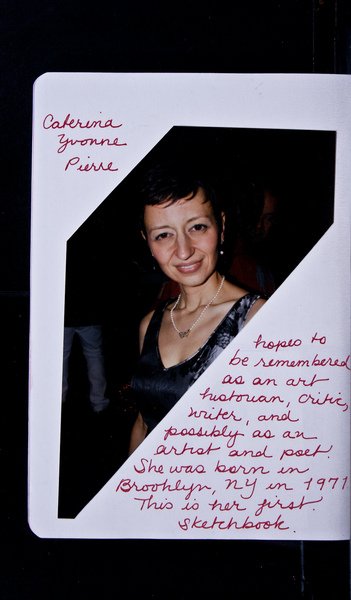 Caterina
Yvonne
Pierre
hopes to
be remembered
as an art
historian, critic,
writer, and
possibly as an
artist and poet.
She was born in
Brooklyn, NY in 1971.
This is her first
sketchbook.